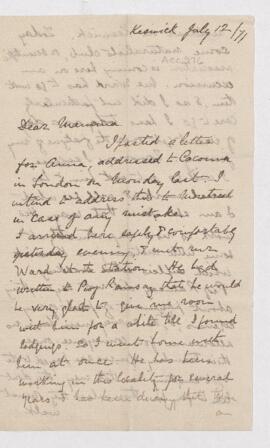 Keswick July 12/71
Dear Mamma
I posted a letter
for Anna, addressed to Cacouna
in London on Monday last. I
intend to address this to Montreal
in case of any mistake.
I arrived here safely & comfortably
yesterday evening & met Mr
Ward at the station. He had
written to Prof Ramsay that he would
be very glad to give me room
with him for a while till I found
lodgings. So I went home with
him at once. He has been
working in this locality for several
years & has been during that